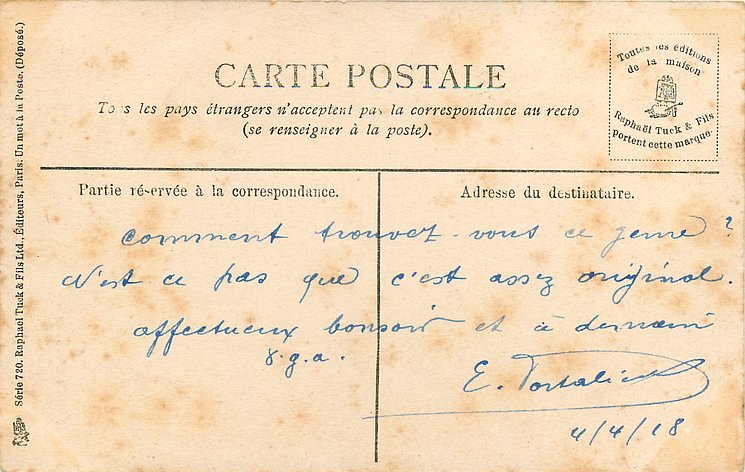 CARTE POSTALE
Tous les pays étrangers n'acceptent pas la correspondance au recto
(se renseigner à la poste).
Toutes les éditions
de la maison
Raphaël Tuck & Fils
Portent cette marque.
Partie réservée à la correspondance.
Adresse du destinataire.
comment trouvez-vous ce genre ?
N'est ce pas que c'est assez original.
affectueux bonsoir et à demain
E.
4/4/18
Série 720. Raphaël Tuck & Fils Ltd., Éditeurs, Paris. Un mot à la Poste. (Déposé.)